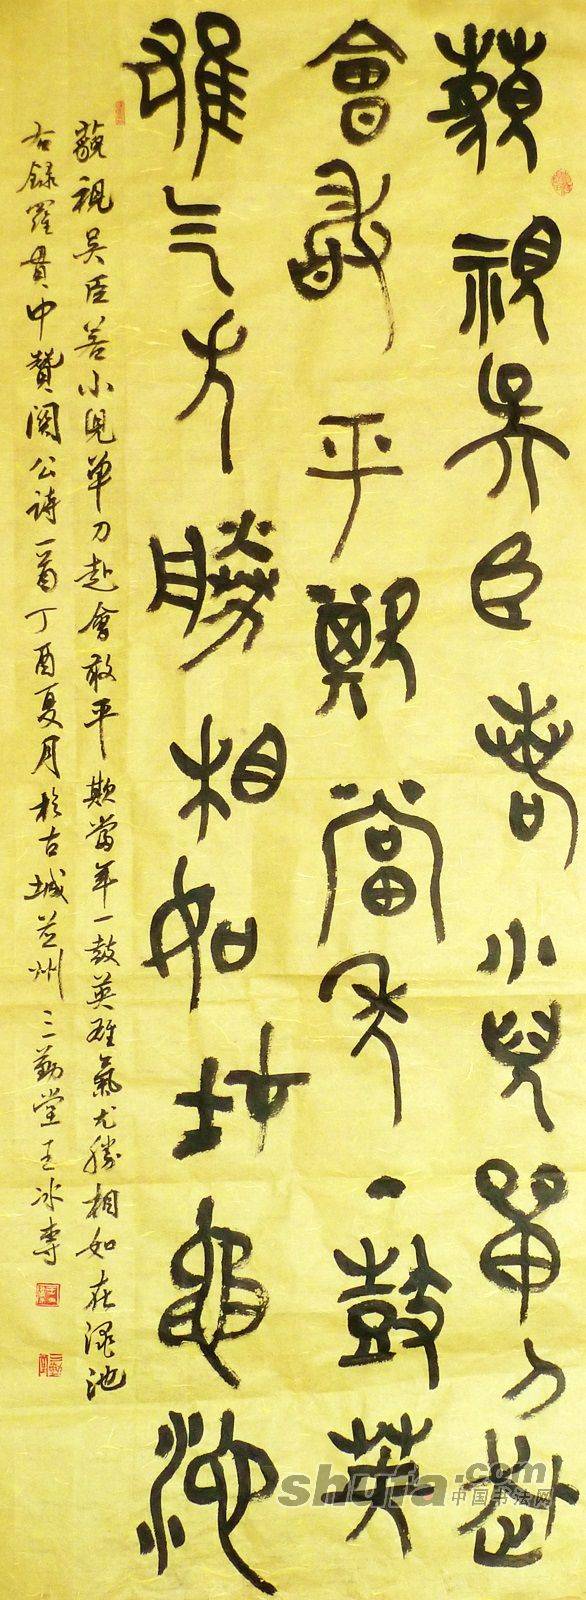 藐視吳臣若小兒單刀赴
會敢平欺當年一鼓英
雄气尤勝相如在黽池
藐視吳臣若小兒單刀赴會敢平欺當年一鼓英雄氣尤勝相如在澠池
右錄羅貫中贊關公詩一首丁酉夏月於古城并州三勤堂王冰書
shufa.com
中国书法网